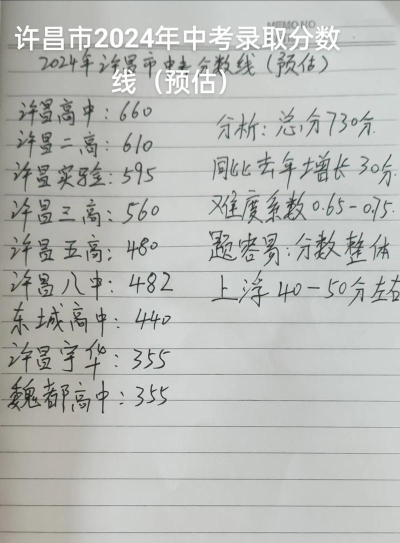 MEMO NO
许昌市2024年中考录取分数
线（预估）
2024年许昌市中考分数线（预估）
许昌高中：660
许昌二高：610
许昌实验：595
许昌三高：560
许昌五高：480
许昌八中：482
东城高中：440
许昌宇华：355
魏都高中：355
分析：总分730分.
同比去年增长30分.
难度系数0.65-0.75.
题容易：分数整体
上浮40-50分左右